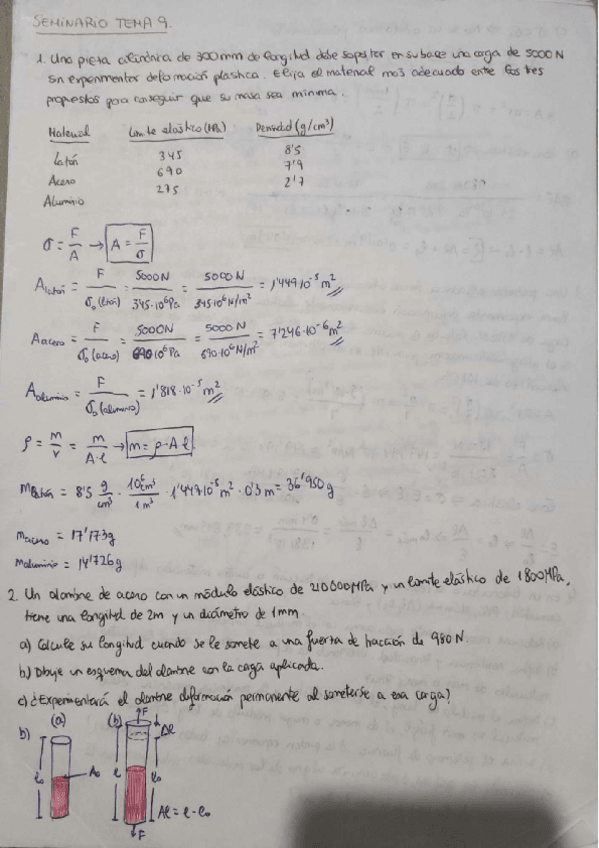 SEMINARIO TEMA 9.
1. Una pieza cilíndrica de 300mm de longitud debe soportar en su base una carga de 5000N
sin experimentar deformación plástica. Elija el material más adecuado entre los tres
propuestos para conseguir que su masa sea mínima.
Material Límite elástico (MPa) Densidad (g/cm³)
Latón 345 8'5
Acero 690 7'9
Aluminio 275 2'7
σ = F/A → A = F/σ
A latón = F/σ₀(latón) = 5000N/345·10⁶Pa = 5000N/345·10⁶N/m² = 1'449·10⁻⁵ m²
A acero = F/σ₀(acero) = 5000N/690·10⁶Pa = 5000N/690·10⁶N/m² = 7'246·10⁻⁶ m²
A aluminio = F/σ₀(aluminio) = 1'818·10⁻⁵ m²
ρ = m/v = m/A·l → m = ρ·A·l
m latón = 8'5 g/cm³ · 10⁶cm³/1m³ · 1'449·10⁻⁵ m² · 0'3m = 36'950g
m acero = 17'173g
m aluminio = 14'726g
2. Un alambre de acero con un módulo elástico de 210000MPa y un límite elástico de 1800MPa,
tiene una longitud de 2m y un diámetro de 1mm.
a) Calcule su longitud cuando se le somete a una fuerza de tracción de 980N.
b) Dibuje un esquema del alambre con la carga aplicada.
c) ¿Experimentará el alambre deformación permanente al someterse a esa carga?
b) (a) (b) F
Δl
l₀ A₀ l l₀
Δl = l - l₀
F